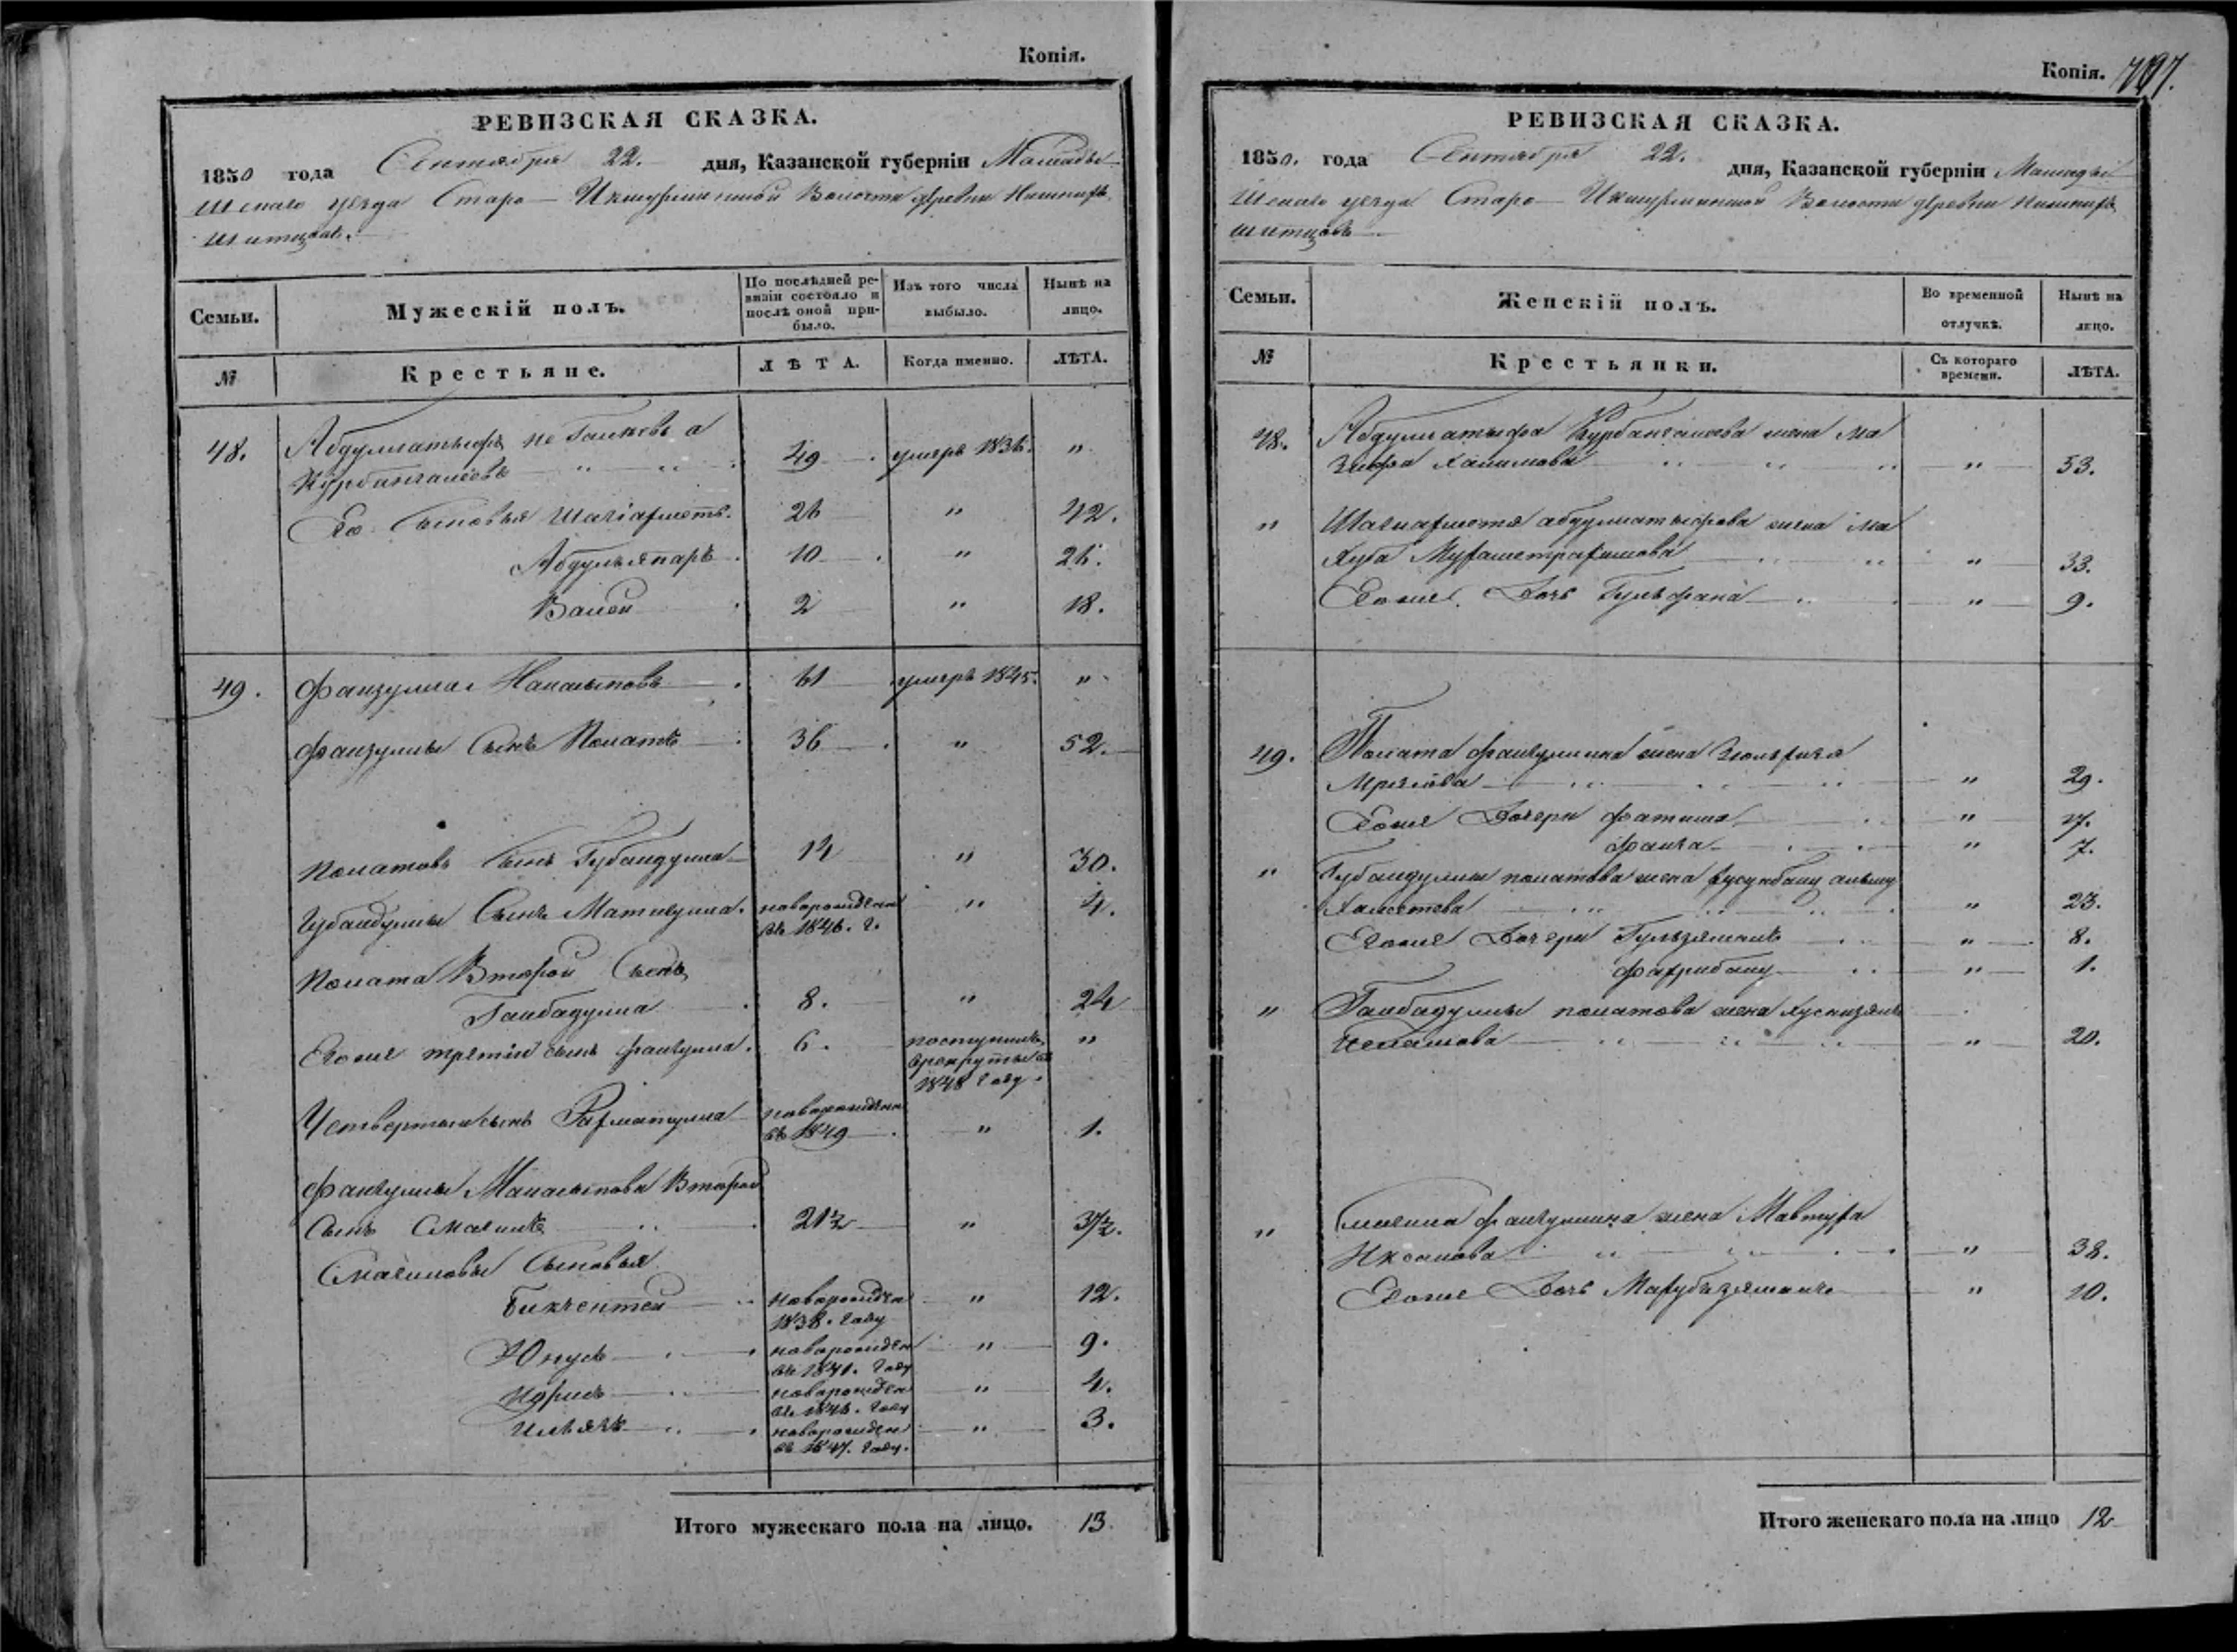 Копія.
РЕВИЗСКАЯ СКАЗКА.
1850 года Сентября 22. дня, Казанской губерніи Мамады-
шскаго уезда Старо-Икшурминской Волости деревни
Семьи.
Мужескій полъ.
По послѣдней ре-
визіи состояло и
послѣ оной при-
было.
Изъ того числа
выбыло.
Нынѣ на
лицо.
№
Крестьяне.
ЛѢТА.
Когда именно.
ЛѢТА.
48. Абдуллатыфъ не Галиевъ а
Курбангалеевъ 49 умеръ 1836. "
Его Сыновья Шагіахметъ. 26 " 42.
Абдульяпаръ 10 " 26.
Валей 2 " 18.
49. Файзулла 61 умеръ 1845. "
Файзуллы Сынъ Полатъ 36 " 52.
Полатовъ Сынъ Губайдулла 14 " 30.
Губайдуллы Сынъ новорожден " 4.
въ 1846. г.
Полата Второй Сынъ
Гайбадулла 8. " 24
Егоже третій сынъ Файзулла. 6. поступилъ "
в рекруты въ
1848 году.
Четвертый сынъ Рахматулла новорожден
въ 1849 " 1.
Файзуллы Второй
Сынъ Смагилъ 21½ " 37½.
Смагиловы Сыновья
Бикчентей новорожден " 12.
1838. году
Юнусъ новорожден " 9.
въ 1841. году
Идрисъ новорожден " 4.
въ 1846. году
Ильясъ новорожден " 3.
въ 1847. году.
Итого мужескаго пола на лицо. 13.
Копія. 797.
РЕВИЗСКАЯ СКАЗКА.
1850. года Сентября 22. дня, Казанской губерніи Мамады-
шскаго уезда Старо-Икшурминской Волости деревни
Семьи.
Женскій полъ.
Во временной
отлучкѣ.
Нынѣ на
лицо.
№
Крестьянки.
Съ котораго
времени.
ЛѢТА.
48. Абдуллатыфа Курбангалеева жена Ма
Халилова " 53.
" Шагиахметя абдуллатыфова жена Ма
хуба " 33.
Егоже Дочь Гульфана " 9.
49. Полата Файзуллина жена
" 29.
Егоже Дочери Фатима " 7.
" 7.
" Губайдуллы полатова жена
Хаметева " 23.
Егоже Дочери Гульзямалъ " 8.
Фахрибану " 1.
" Гайбадуллы полатова жена
" 20.
" Смагила Файзуллина жена Мавтуха
Иксанова " 38.
Егоже Дочь " 10.
Итого женскаго пола на лицо 12